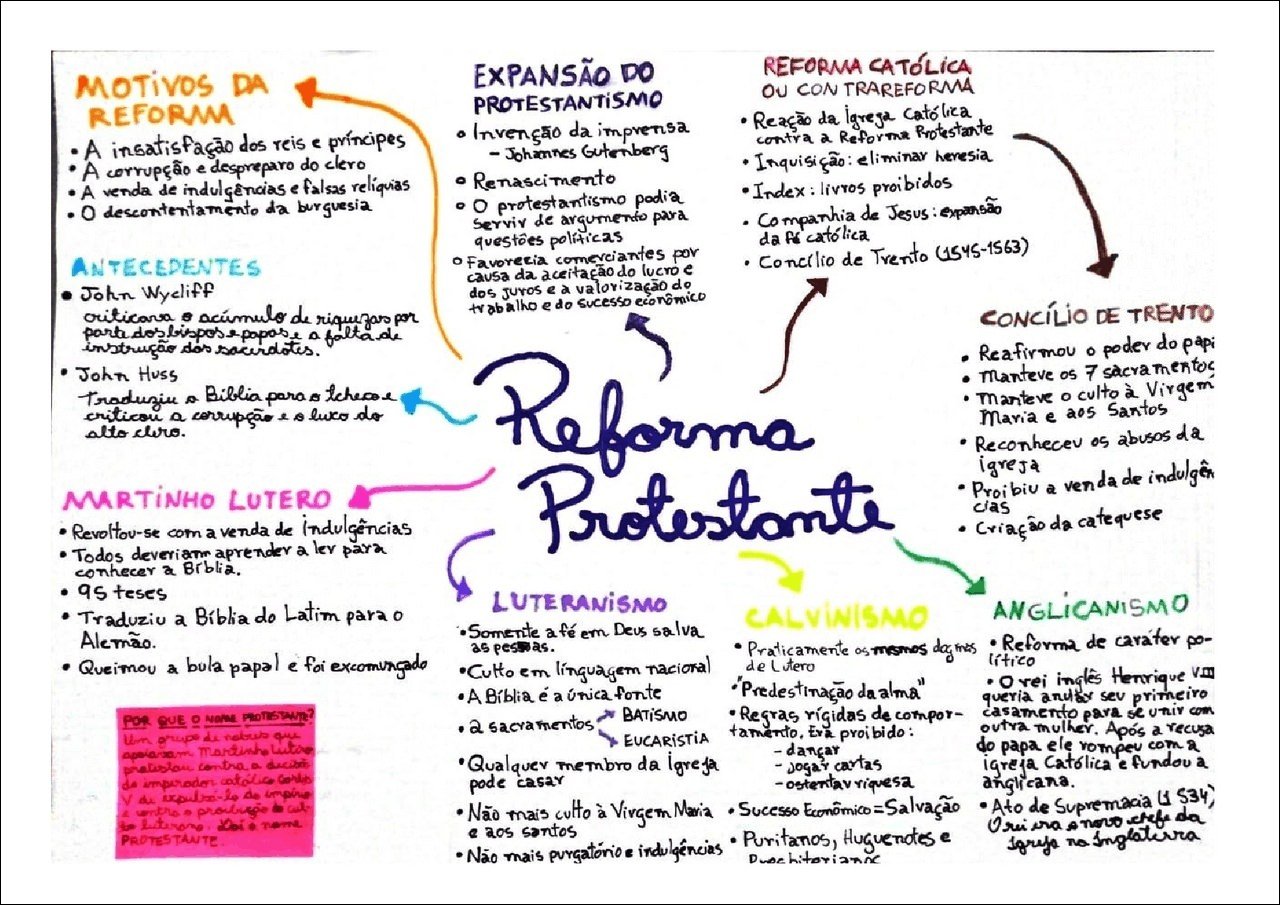 MOTIVOS DA
REFORMA
• A insatisfação dos reis e príncipes
• A corrupção e despreparo do clero
• A venda de indulgências e falsas relíquias
• O descontentamento da burguesia
ANTECEDENTES
• John Wycliff
criticava o acúmulo de riquezas por
parte dos bispos e papas e a falta de
instrução dos sacerdotes.
• John Huss
Traduziu a Bíblia para o tcheco e
criticou a corrupção e o luxo do
alto clero.
MARTINHO LUTERO
• Revoltou-se com a venda de Indulgências
• Todos deveriam aprender a ler para
conhecer a Bíblia.
• 95 teses
• Traduziu a Bíblia do Latim para o
Alemão.
• Queimou a bula papal e foi excomungado
POR QUE O NOME PROTESTANTE?
Um grupo de nobres que
apoiavam Martinho Lutero
protestou contra a decisão
do imperador católico Carlos
V de expulsá-lo do império
e contra a proibição do cul-
to luterano. Daí o nome
PROTESTANTE.
EXPANSÃO DO
PROTESTANTISMO
• Invenção da imprensa
- Johannes Gutenberg
• Renascimento
• O protestantismo podia
servir de argumento para
questões políticas
• Favorecia comerciantes por
causa da aceitação do lucro e
dos juros e a valorização do
trabalho e do sucesso econômico
REFORMA CATÓLICA
OU CONTRAREFORMA
• Reação da Igreja Católica
contra a Reforma Protestante
• Inquisição: eliminar heresia
• Index: livros proibidos
• Companhia de Jesus: expansão
da fé católica
• Concílio de Trento (1545-1563)
CONCÍLIO DE TRENTO
• Reafirmou o poder do pap
• Manteve os 7 sacramentos
• Manteve o culto à Virgem
Maria e aos Santos
• Reconheceu os abusos da
igreja
• Proibiu a venda de indulgên
cias
• Criação da catequese
Reforma
Protestante
LUTERANISMO
• Somente a fé em Deus salva
as pessoas.
• Culto em linguagem nacional
• A Bíblia é a única fonte
• 2 sacramentos
BATISMO
EUCARISTIA
• Qualquer membro da Igreja
pode casar
• Não mais culto à Virgem Maria
e aos santos
• Não mais purgatório e indulgências
CALVINISMO
• Praticamente os mesmos dogmas
de Lutero
• "Predestinação da alma"
• Regras rígidas de compor-
tamento. Era proibido:
- dançar
- jogar cartas
- ostentar riquesa
• Sucesso Econômico = Salvação
• Puritanos, Huguenotes e
Presbiterianos
ANGLICANISMO
• Reforma de caráter po-
lítico
• O rei inglês Henrique VIII
queria anular seu primeiro
casamento para se unir com
outra mulher. Após a recusa
do papa ele rompeu com a
igreja Católica e fundou a
anglicana.
• Ato de Supremacia (1534)
O rei era o novo chefe da
Igreja na Inglaterra